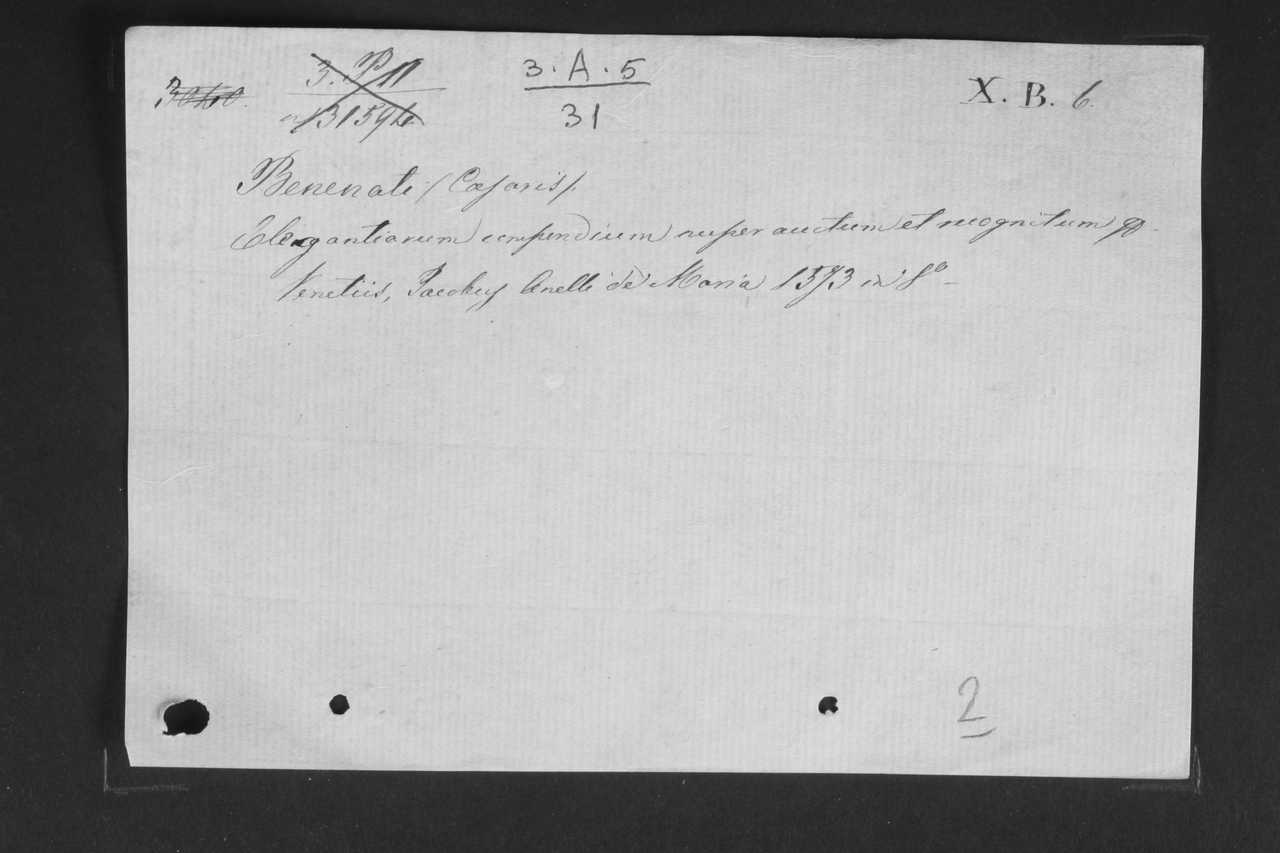 3040.
3. P 11
n 131594.
3. A. 5
31
X. B. 6.
Benenati (Cæsaris).
Elegantiarum compendium nuper auctum et recognitum
Venetiis, Jacobus Anelli de Maria 1573 in 8º
2